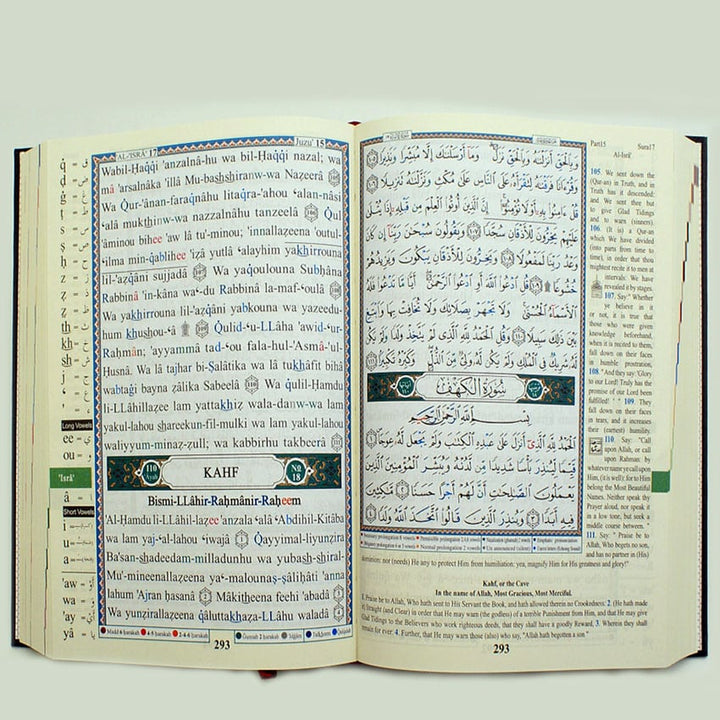 AL-'ISRÂ' 17
Juzu' 15
Wabil-Ḥaqqi 'anzalnâ-hu wa bil-Ḥaqqi nazal; wa
mâ 'arsalnâka 'illâ Mu-bashshiranw-wa Nazeerâ
Wa Qur-'ânan-faraqnâhu litaqra-'ahou 'alan-nâsi
'alâ mukthinw-wa nazzalnâhu tanzeelâ Qul
'âminou bihee 'aw lâ tu'-minou; 'innallazeena 'outul-
'ilma min-qablihee 'izâ yutlâ 'alayhim yakhirrouna
lil-'azqâni sujjadâ Wa yaqoulouna Subḥâna
Rabbinâ 'in-kâna wa'-du Rabbina la-maf-'oulâ
Wa yakhirrouna lil-'azqâni yabkouna wa yazeedu-
hum khushou-'â Qulid-'u-LLâha 'awid-'ur-
Raḥmân; 'ayyammâ tad-'ou fala-hul-'Asmâ-'ul-
Ḥusnâ. Wa lâ tajhar bi-Ṣalâtika wa lâ tukhâfit bihâ
wabtaġi bayna zâlika Sabeelâ Wa qulil-Ḥamdu
li-LLâhillazee lam yattakhiz wala-danw-wa lam
yakul-lahou shareekun-fil-mulki wa lam yakul-lahou
waliyyum-minaz-zull; wa kabbirhu takbeerâ
110 Âyah
KAHF
No 18
Bismi-LLâhir-Raḥmânir-Raḥeem
'Al-Ḥamdu li-LLâhil-lazee 'anzala 'alâ 'Abdihil-Kitâba
wa lam yaj-'al-lahou 'iwajâ Qayyimal-liyunzira
Ba'san-shadeedam-milladunhu wa yubash-shiral-
Mu'-mineenallazeena ya'-malounaṣ-ṣâliḥâti 'anna
lahum 'Ajran ḥasanâ Mâkitheena feehi 'abadâ
Wa yunzirallazeena qâluttakhaza-LLâhu waladâ
Madd 6 ḥarakah 4-5 ḥarakah 2-4-6 ḥarakah Ġunnah 2 ḥarakah 'Idġâm Tafkheem Qalqala
293
q̇ = ق
ḍ = ض
th
kh
sh
Long Vowels
ee
ou
'Isrâ'
â
Short Vowels
i
u
a
'aw
'ay
yâ
وَبِالْحَقِّ أَنزَلْنَاهُ وَبِالْحَقِّ نَزَلَ وَمَا أَرْسَلْنَاكَ إِلَّا مُبَشِّرًا وَنَذِيرًا ١٠٥
وَقُرْءَانًا فَرَقْنَاهُ لِتَقْرَأَهُ عَلَى النَّاسِ عَلَى مُكْثٍ وَنَزَّلْنَاهُ تَنزِيلًا ١٠٦
قُلْ ءَامِنُوا بِهِ أَوْ لَا تُؤْمِنُوا إِنَّ الَّذِينَ أُوتُوا الْعِلْمَ مِن قَبْلِهِ إِذَا يُتْلَى
عَلَيْهِمْ يَخِرُّونَ لِلْأَذْقَانِ سُجَّدًا ١٠٧ وَيَقُولُونَ سُبْحَانَ رَبِّنَا إِن كَانَ
وَعْدُ رَبِّنَا لَمَفْعُولًا ١٠٨ وَيَخِرُّونَ لِلْأَذْقَانِ يَبْكُونَ وَيَزِيدُهُمْ
خُشُوعًا ۩ ١٠٩ قُلِ ادْعُوا اللَّهَ أَوِ ادْعُوا الرَّحْمَٰنَ أَيًّا مَّا تَدْعُوا فَلَهُ
الْأَسْمَاءُ الْحُسْنَى وَلَا تَجْهَرْ بِصَلَاتِكَ وَلَا تُخَافِتْ بِهَا وَابْتَغِ
بَيْنَ ذَٰلِكَ سَبِيلًا ١١٠ وَقُلِ الْحَمْدُ لِلَّهِ الَّذِي لَمْ يَتَّخِذْ وَلَدًا وَلَمْ يَكُن
لَّهُ شَرِيكٌ فِي الْمُلْكِ وَلَمْ يَكُن لَّهُ وَلِيٌّ مِّنَ الذُّلِّ وَكَبِّرْهُ تَكْبِيرًا ١١١
سُورَةُ الْكَهْفِ
بِسْمِ اللَّهِ الرَّحْمَٰنِ الرَّحِيمِ
الْحَمْدُ لِلَّهِ الَّذِي أَنزَلَ عَلَى عَبْدِهِ الْكِتَابَ وَلَمْ يَجْعَل لَّهُ عِوَجَا ١
قَيِّمًا لِّيُنذِرَ بَأْسًا شَدِيدًا مِّن لَّدُنْهُ وَيُبَشِّرَ الْمُؤْمِنِينَ الَّذِينَ
يَعْمَلُونَ الصَّالِحَاتِ أَنَّ لَهُمْ أَجْرًا حَسَنًا ٢ مَّاكِثِينَ
فِيهِ أَبَدًا ٣ وَيُنذِرَ الَّذِينَ قَالُوا اتَّخَذَ اللَّهُ وَلَدًا ٤
Part15 Sura17
Al-Isrâ'
105. We sent down the
(Qur-an) in Truth, and in
Truth has it descended:
and We sent thee but
to give Glad Tidings
and to warn (sinners).
106. (It is) a Qur-an
which We have divided
(into parts from time to
time), in order that thou
mightest recite it to men at
intervals: We have
revealed it by stages.
107. Say: "Whether
ye believe in it
or not, it is true
that those who
were given
knowledge
beforehand,
when it is recited to them,
fall down on their faces
in humble prostration.
108. "And they say: 'Glory
to our Lord! Truly has the
promise of our Lord been
fulfilled!' " 109. They
fall down on their faces
in tears, and it increases
their (earnest) humility.
110. Say: "Call
upon Allah, or call
upon Rahman: by
whatever name ye call upon
Him, (it is well): for to Him
belong the Most Beautiful
Names. Neither speak thy
Prayer aloud, nor speak it
in a low tone, but seek a
middle course between."
111. Say: "Praise be to
Allah, Who begets no son,
and has no partner in (His)
dominion: nor (needs) He any to protect Him from humiliation: yea, magnify Him for His greatness and glory!"
Kahf, or the Cave
In the name of Allah, Most Gracious, Most Merciful.
1. Praise be to Allah, Who hath sent to His Servant the Book, and hath allowed therein no Crookedness: 2. (He hath made
it) Straight (and Clear) in order that He may warn (the godless) of a terrible Punishment from Him, and that He may give
Glad Tidings to the Believers who work righteous deeds, that they shall have a goodly Reward, 3. Wherein they shall
remain for ever: 4. Further, that He may warn those (also) who say, "Allah hath begotten a son."
293